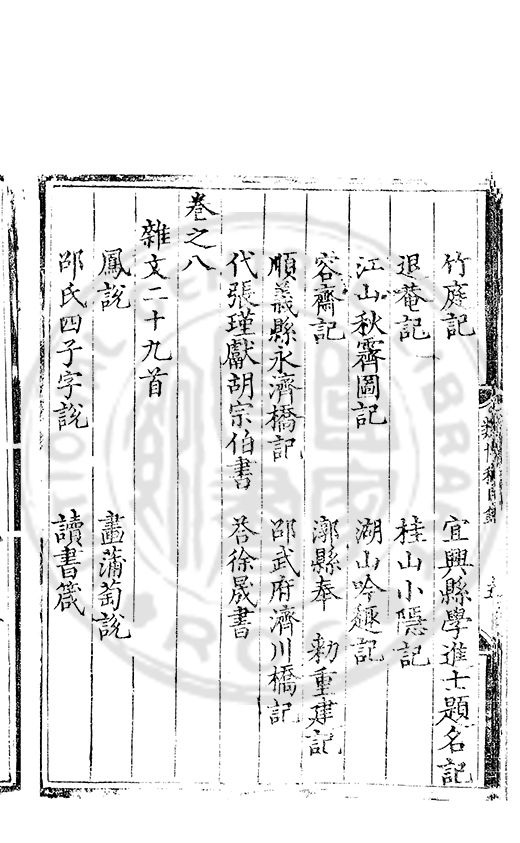 竹庭記　宜興縣學進士題名記
退菴記　桂山小隱記
江山秋霽圖記　湖山吟趣記
容齋記　漷縣奉　勑重建記
順義縣永濟橋記　邵武府濟川橋記
代張瑾獻胡宗伯書　荅徐晟書
卷之八
雜文二十九首
鳳說　畫蒲萄說
邵氏四子字說　讀書箴